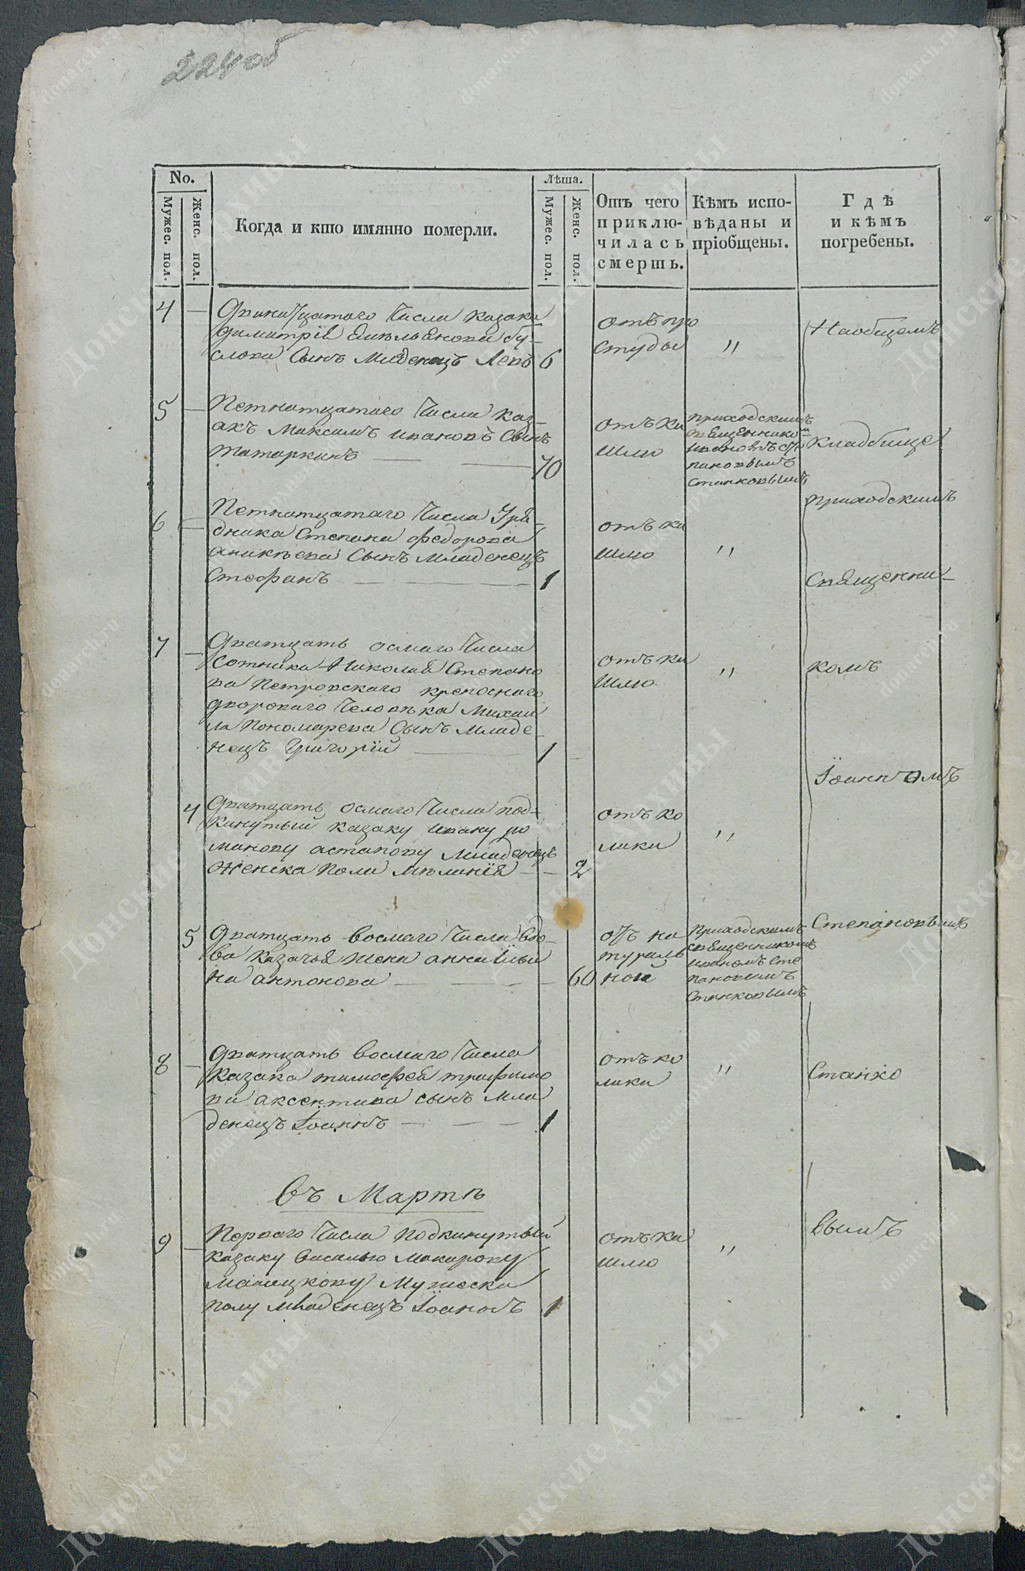 224об
No.
Мужес. пол.
Женс. пол.
Когда и кто имянно померли.
Лѣта.
Мужес. пол.
Женс. пол.
Отъ чего
приклю-
чилась
смерть.
Кѣмъ испо-
вѣданы и
пріобщены.
Гдѣ
и кѣмъ
погребены.
4 — Двенатцатого Числа казака
Димитрія Емельянова Бу-
слова Сынъ Младенецъ 6
отъ про
студы
"
На общемъ
5 — Петнатцатого Числа каз-
акъ Максимъ Ивановъ Сынъ
Татаркинъ — — 70
отъ ка
шлю
приходскимъ
священнико
Иваномъ Сте
пановымъ
Станковымъ
Кладбище
6 — Петнатцатаго Числа Уря
дника Степана Федорова
Аникѣева Сынъ Младенецъ
Стефанъ — — — 1
отъ ка
шлю
"
приходскимъ
Священни-
7 — Дватцать осмаго Числа
Сотника Николая Степано
ва Петровскаго крепоснаго
дворового Человѣка Михаи
ла Пономарева Сынъ Младе-
нецъ Григорій — 1
отъ ка
шлю
"
комъ
Іоанномъ
4 Дватцать осмаго Числа под-
кинутый казаку Ивану ро
манову Астапову Младенецъ
Женска пола Меланія — 2
отъ ко
лики
"
5 Дватцать восмаго Числа вдо-
ва Казачья жена Анна Ильи
на Антонова — — — 60
отъ на
тураль
ной
Приходскимъ
священникомъ
Иваномъ Сте
пановымъ
Станковымъ
Степановымъ
8 — Дватцать восмаго Числа
Казака Тимофея Трофимо
ва Аксентива сынъ Мла
денецъ Іоаннъ — — — 1
отъ ко
лики
"
Станко
Въ Мартѣ
9 — Перваго Числа подкинутый
казаку Василью Макарову
Мужеска
полу Младенецъ Іоаннъ 1
отъ ка
шлю
"
вымъ
Донские Архивы
donarch.ru
донскиеархивы.рф